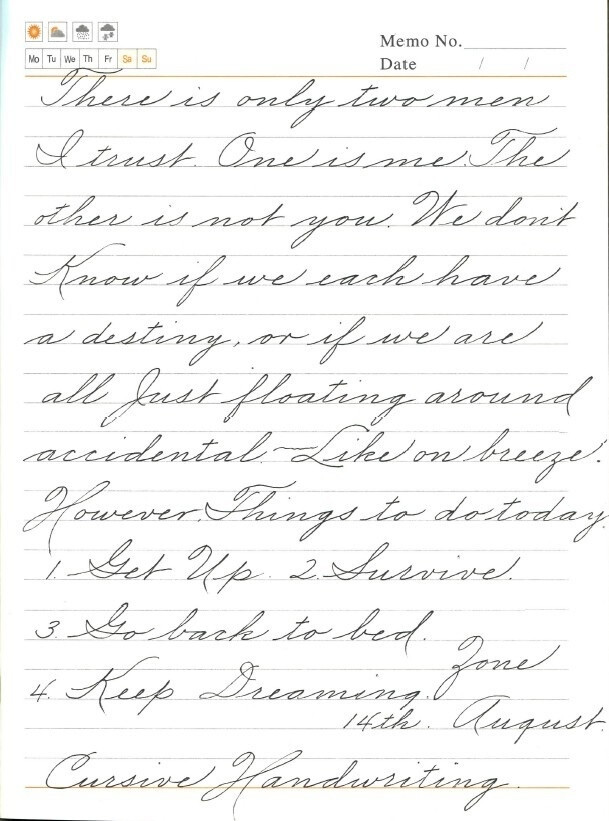 Memo No.
Mo Tu We Th Fr Sa Su
Date / /
There is only two men
I trust. One is me. The
other is not you. We don't
Know if we each have
a destiny, or if we are
all Just floating around
accidental ~ Like on breeze.
However. Things to do today.
1. Get Up. 2. Survive.
3. Go back to bed.
Zone
4. Keep Dreaming.
14th. August.
Cursive Handwriting.